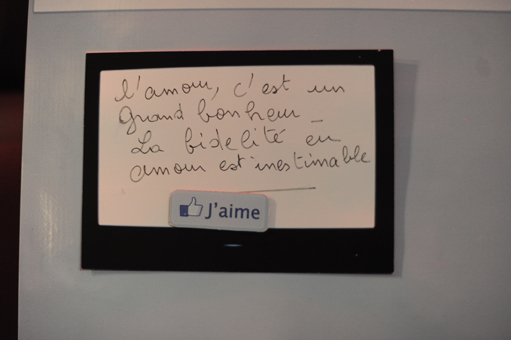 L'amour, c'est un
grand bonheur _
La fidelité en
amour est inestimable
J'aime